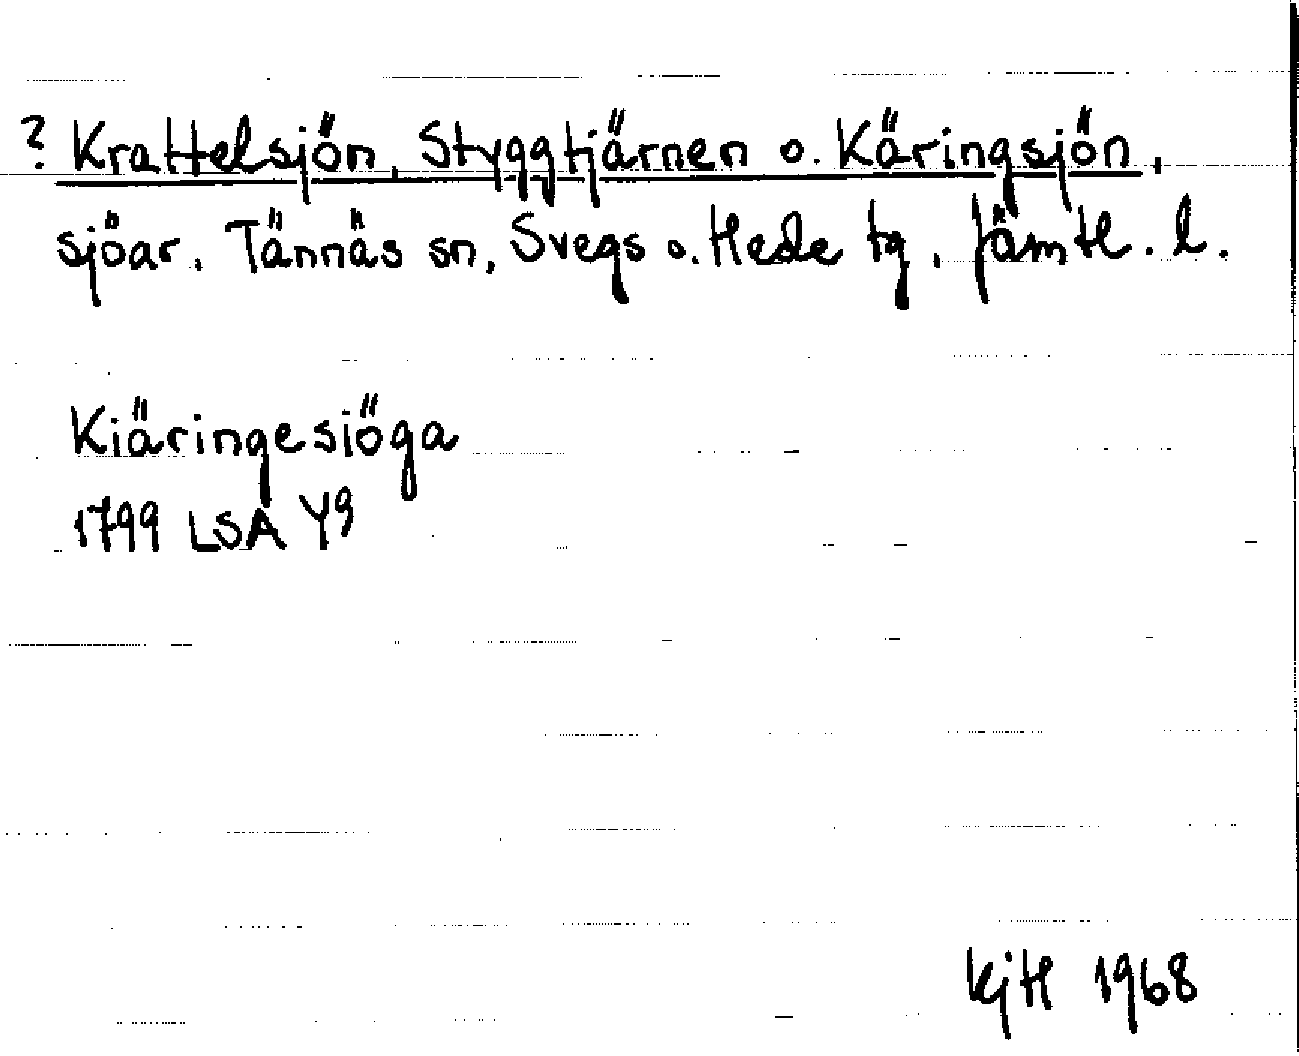 ? Krattelsjön, Styggtjärnen o. Käringsjön,
sjöar, Tännäs sn, Svegs o. Hede tg, Jämtl. l.
Kiäringesiöga
1799 LSA Y9
KjH 1968